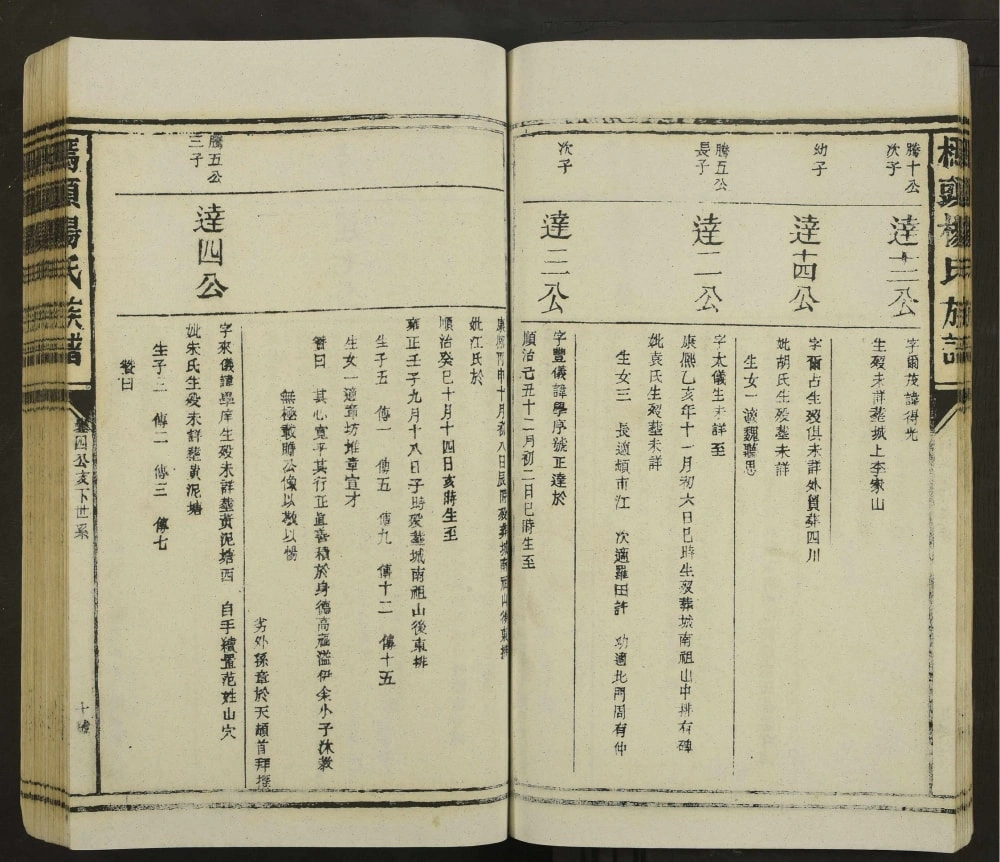 楊氏族譜
騰十公
次子
達十三公
字爾茂諱得光
生歿未詳葬城上李家山
幼子
達十四公
字爾占生歿俱未詳外貿葬四川
妣胡氏生歿葬未詳
生女一適魏聽思
騰五公
長子
達二公
字太儀生未詳至
康熙乙亥年十一月初六日巳時生歿葬城南祖山中排有碑
妣袁氏生歿葬未詳
生女三 長適頓市江 次適羅田許 功適北門周有仲
次子
達三公
字豐儀諱學序號正達於
順治己丑十二月初二日巳時生至
康熙 申十月初八日艮時歿葬城南祖山後東排
妣江氏於
順治癸巳十月十四日亥時生至
雍正壬子九月十八日子時歿葬城南祖山後東排
生子五 傳一 傳五 傳九 傳十二 傳十五
生女一適 坊堆章宣才
贊曰 其心寬平其行正直善積於身德高福溢伊余小子沐教
無極敢贈公像以敬以惕
劣外孫章於天頓首拜撰
騰五公
三子
達四公
字來儀諱學庠生歿未詳葬黃泥塘西 自手續置范姓山穴
妣朱氏生歿未詳葬黃泥塘
生子三 傳二 傳三 傳七
贊曰
頭楊氏族譜
卷四公支下世系
十